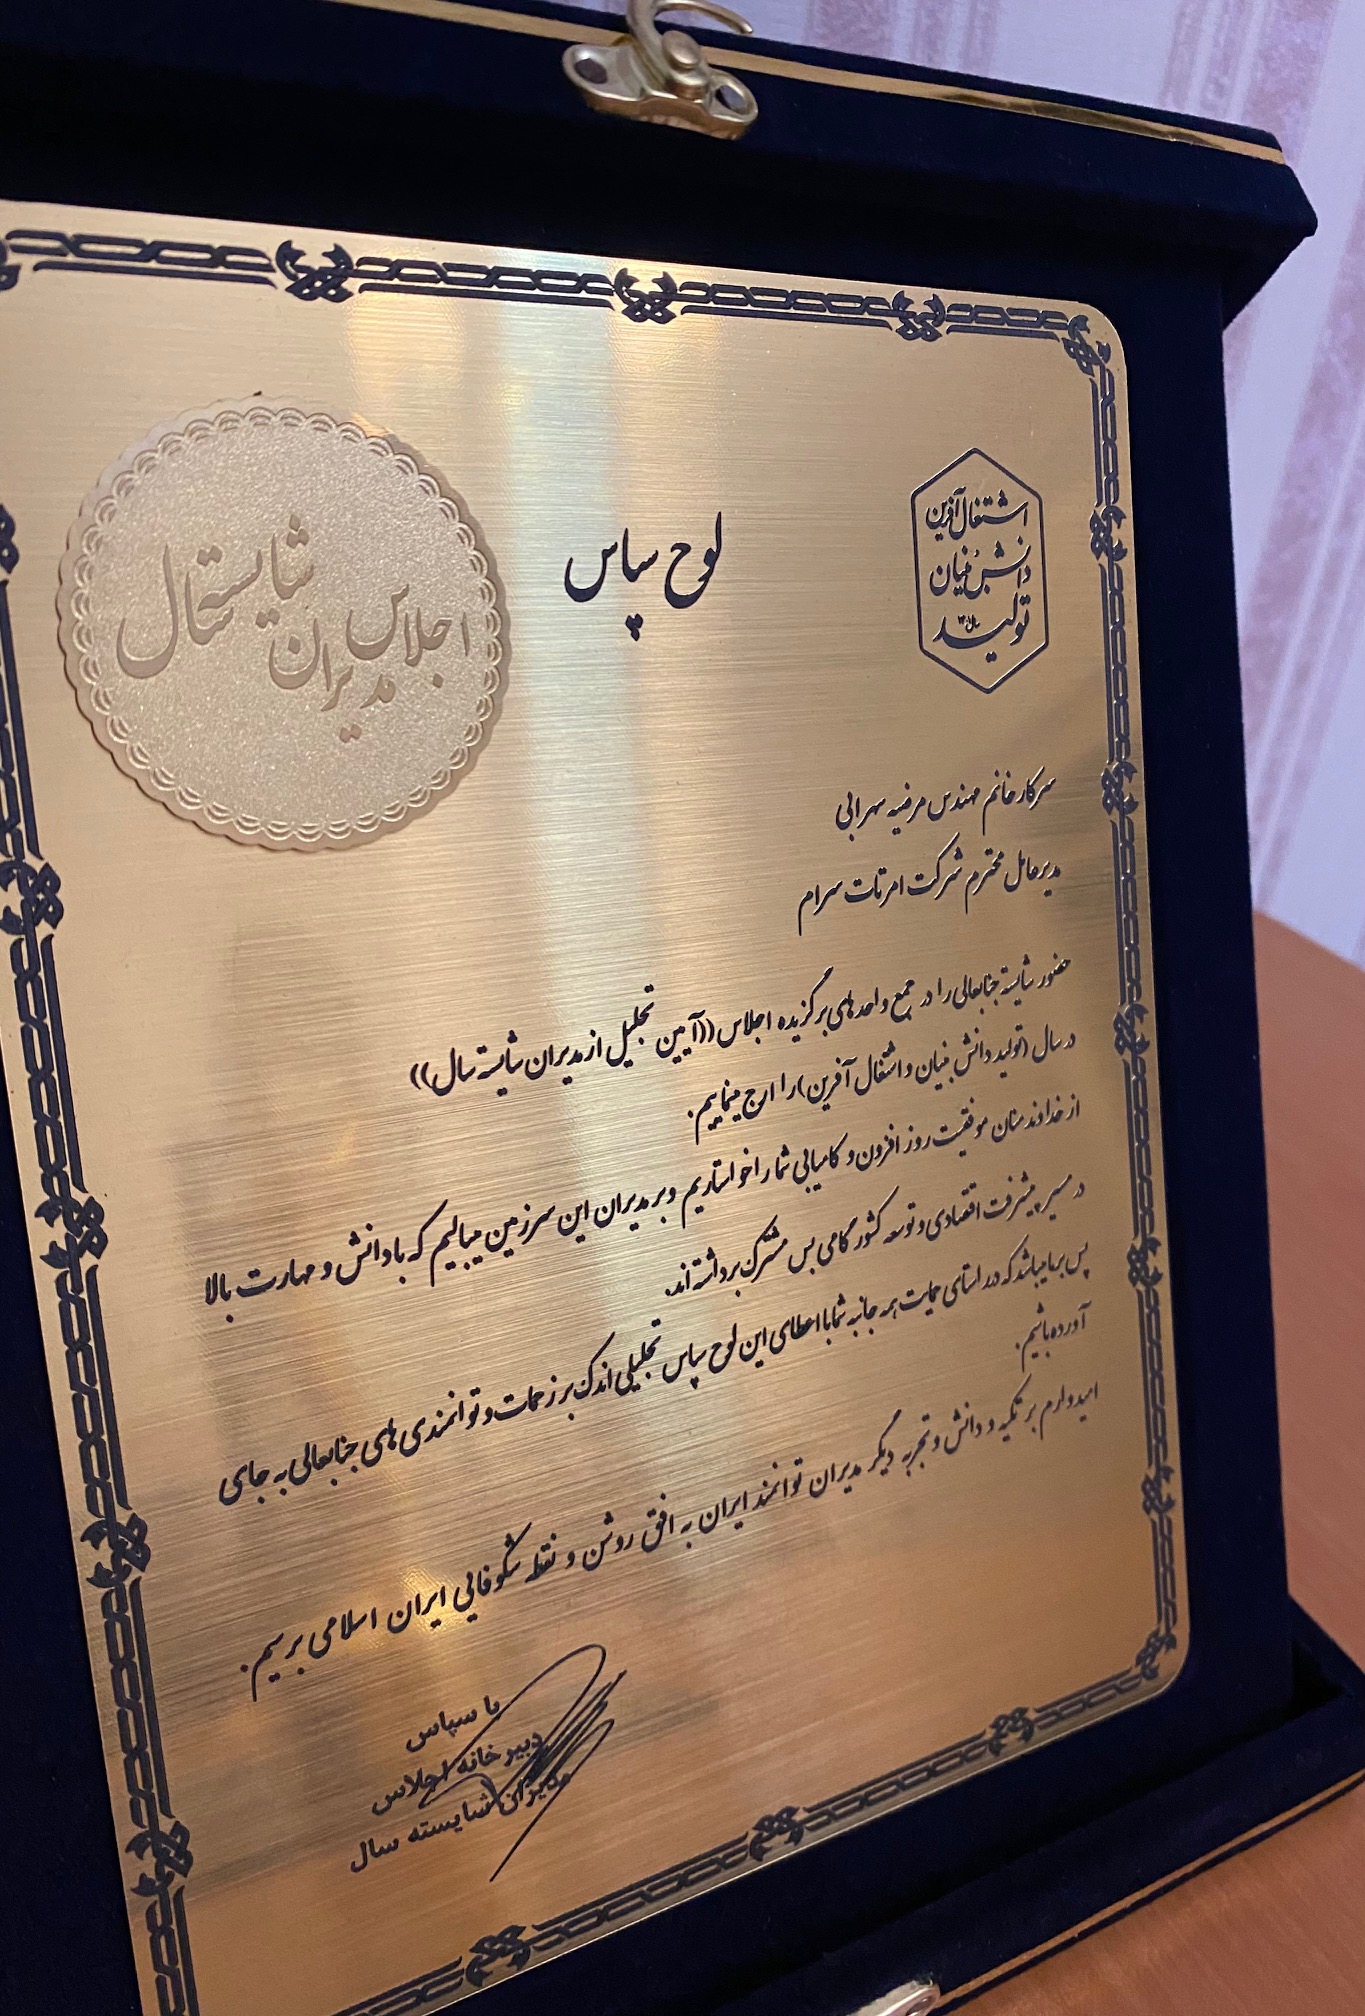 اجلاس
مدیران
شایسته سال
لوح سپاس
تولید
دانش بنیان
اشتغال آفرین
سرکار خانم مهندس مرضیه سهرابی
مدیرعامل محترم شرکت امرتات سرام
حضور شایسته جنابعالی را در جمع واحدهای برگزیده اجلاس ((آیین تجلیل از مدیران شایسته سال))
در سال (تولید دانش بنیان و اشتغال آفرین) را ارج مینماییم.
از خداوند منان موفقیت روز افزون و کامیابی شما را خواستاریم و بر مدیران این سرزمین میبالیم که با دانش و مهارت بالا
در مسیر پیشرفت اقتصادی و توسعه کشور گامی بس مشترک برداشته اند.
پس بر ما میباشد که در راستای حمایت همه جانبه شما با اعطای این لوح سپاس تجلیلی اندک بر زحمات و توانمندی های جنابعالی به جای
آورده باشیم.
امیدوارم بر تکیه و دانش و تجربه دیگر مدیران توانمند ایران به افق روشن و نقطه شکوفایی ایران اسلامی برسیم.
با سپاس
دبیر خانه اجلاس
مدیران شایسته سال